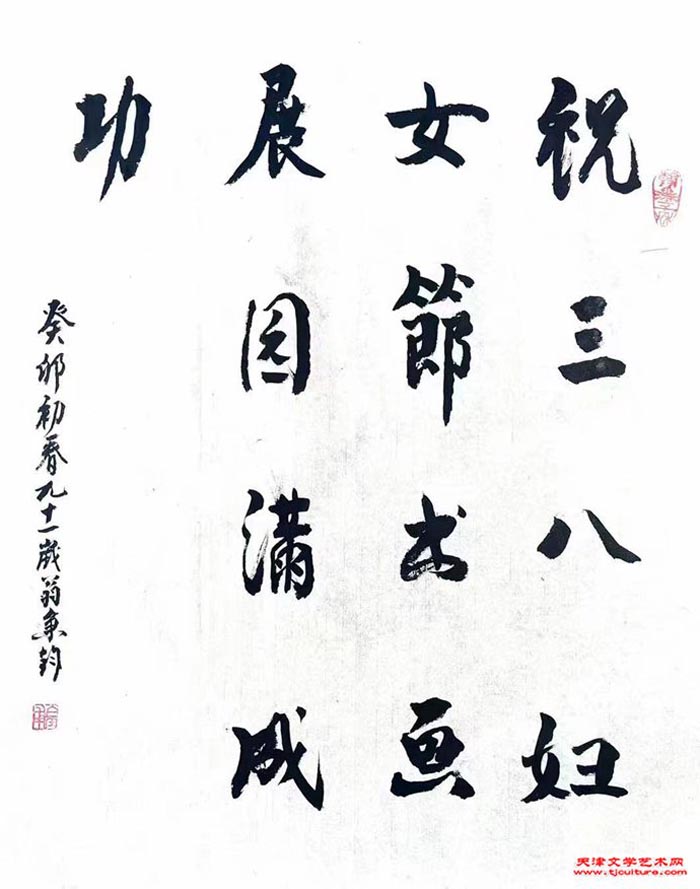 祝三八妇
女節书画
展园滿成
功
癸卯初春九十一歲翁
天津文学艺术网
www.tjculture.com